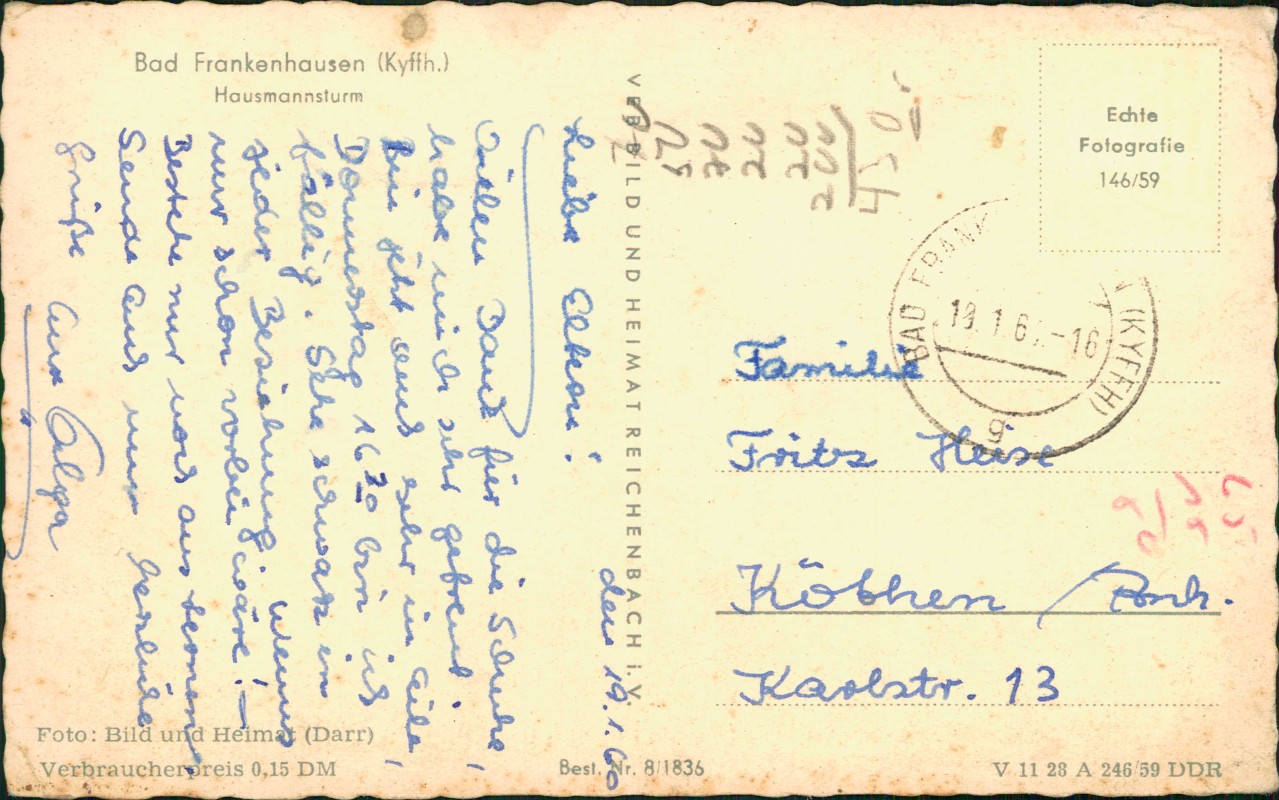 Bad Frankenhausen (Kyffh.)
Hausmannsturm
den 19.1.60
Liebe Eltern!
Vielen Dank für die Schuhe,
habe mich sehr gefreut.
Bin jetzt auch sehr in Eile,
Donnerstag 16 30 bin ich
fällig. Sehe schwarz in
jeder Beziehung, wenns
nur schon vorbei wäre!—
Bestehe nur noch aus
Sende Euch nun herzliche
Grüße Eure Helga
VEB BILD UND HEIMAT REICHENBACH i. V.
Echte
Fotografie
146/59
BAD FRANK (KYFFH)
19.1.6 -16
g
200
200
Familie
Fritz Heise
Köthen / Anh.
Karlstr. 13
Foto: Bild und Heimat (Darr)
Verbraucherpreis 0,15 DM
Best. Nr. 8/1836
V 11 28 A 246/59 DDR